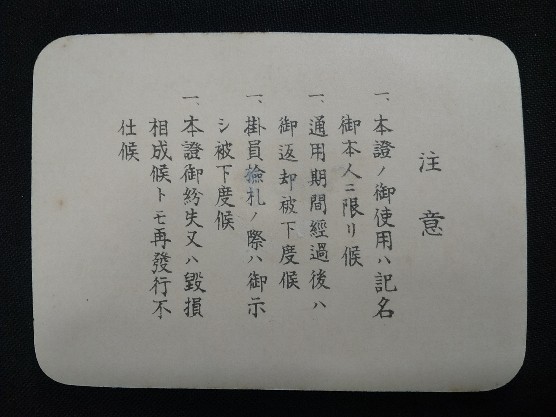 注意
一、本證ノ御使用ハ記名
御本人ニ限リ候
一、通用期間經過後ハ
御返却被下度候
一、掛員撿札ノ際ハ御示
シ被下度候
一、本證御紛失又ハ毀損
相成候トモ再發行不
仕候